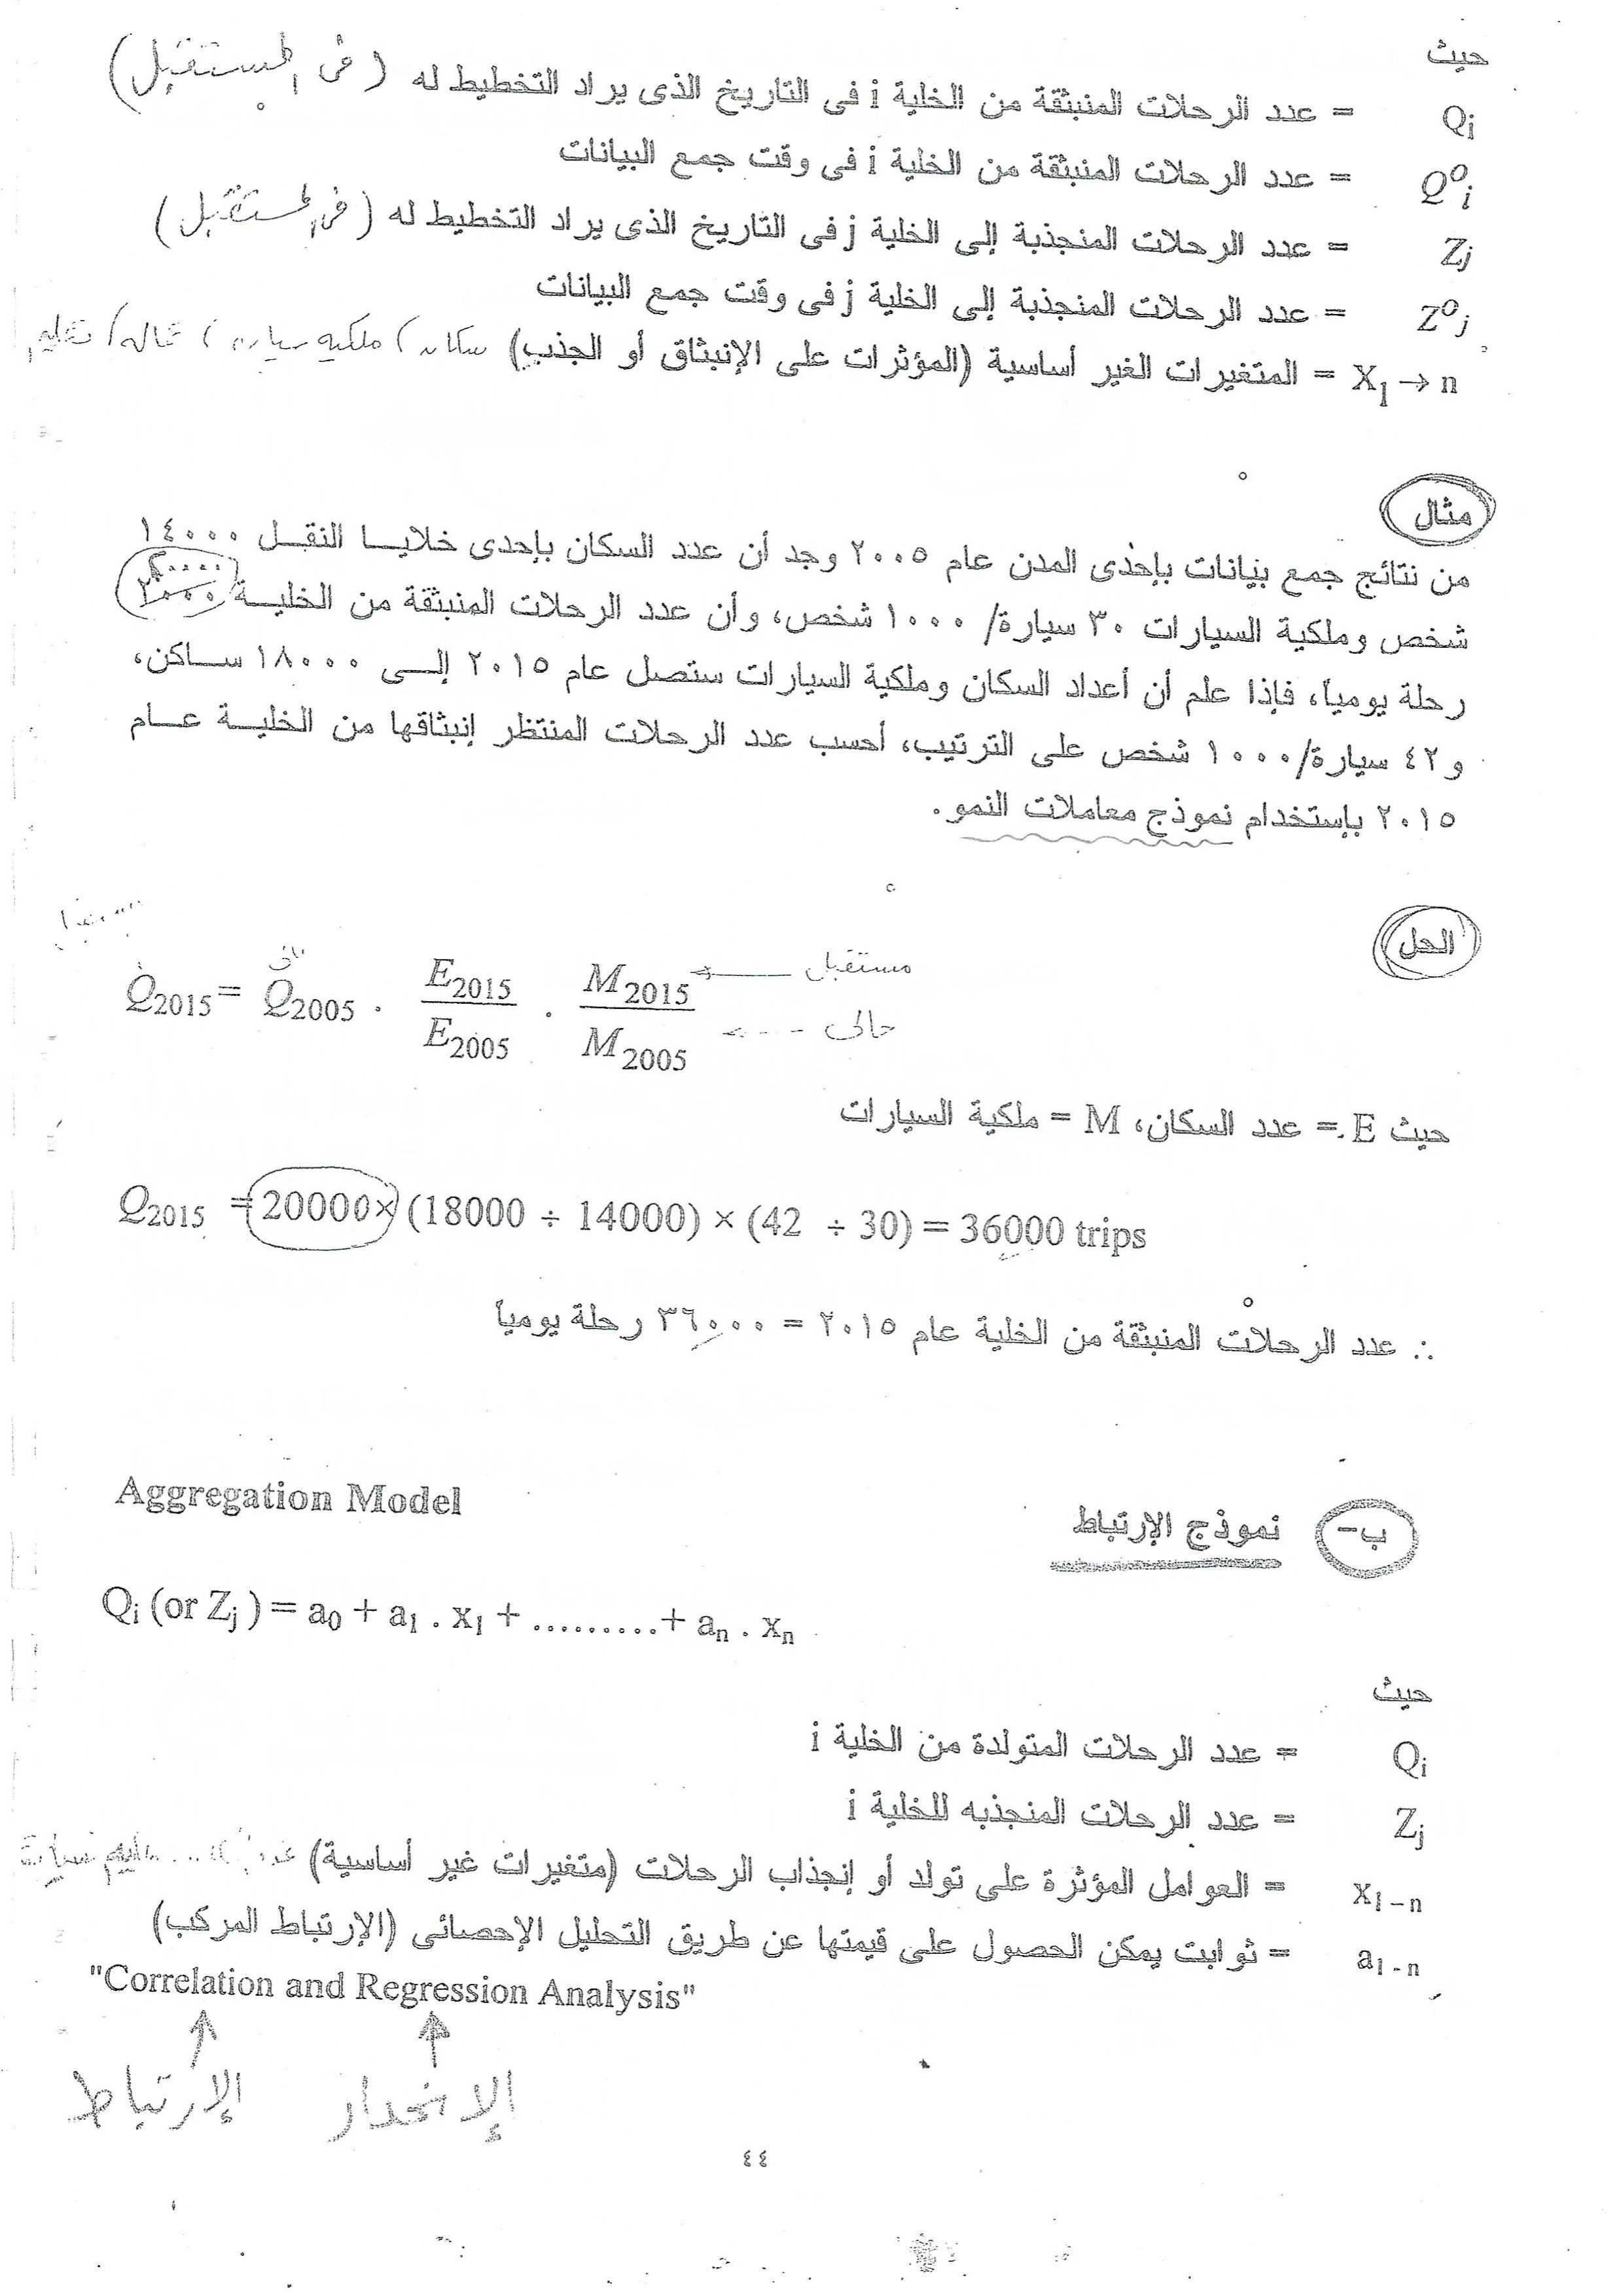 حيث
Qi = عدد الرحلات المنبثقة من الخلية i فى التاريخ الذى يراد التخطيط له (فى المستقبل)
Q⁰i = عدد الرحلات المنبثقة من الخلية i فى وقت جمع البيانات
Zj = عدد الرحلات المنجذبة إلى الخلية j فى التاريخ الذى يراد التخطيط له (فى المستقبل)
Z⁰j = عدد الرحلات المنجذبة إلى الخلية j فى وقت جمع البيانات
X1 → n = المتغيرات الغير أساسية (المؤثرات على الإنبثاق أو الجذب) سكان / ملكيه سياره / عماله / تعليم
مثال
من نتائج جمع بيانات بإحدى المدن عام ٢٠٠٥ وجد أن عدد السكان بإحدى خلايا النقل ١٤٠٠٠
شخص وملكية السيارات ٣٠ سيارة/ ١٠٠٠ شخص، وأن عدد الرحلات المنبثقة من الخلية
رحلة يومياً، فإذا علم أن أعداد السكان وملكية السيارات ستصل عام ٢٠١٥ إلى ١٨٠٠٠ ساكن،
و ٤٢ سيارة/١٠٠٠ شخص على الترتيب، أحسب عدد الرحلات المنتظر إنبثاقها من الخلية عام
٢٠١٥ بإستخدام نموذج معاملات النمو.
الحل
Q2015 = Q2005 . E2015 / E2005 . M2015 / M2005
مستقبل
حالى
حيث E = عدد السكان، M = ملكية السيارات
Q2015 = 20000× (18000 ÷ 14000) × (42 ÷ 30) = 36000 trips
∴ عدد الرحلات المنبثقة من الخلية عام ٢٠١٥ = ٣٦٠٠٠ رحلة يومياً
ب- نموذج الإرتباط Aggregation Model
Qi (or Zj ) = a0 + a1 . x1 + .........+ an . xn
حيث
Qi = عدد الرحلات المتولدة من الخلية i
Zj = عدد الرحلات المنجذبه للخلية i
x1-n = العوامل المؤثرة على تولد أو إنجذاب الرحلات (متغيرات غير أساسية)
a1-n = ثوابت يمكن الحصول على قيمتها عن طريق التحليل الإحصائى (الإرتباط المركب)
"Correlation and Regression Analysis"
الإرتباط الإنحدار
٤٤